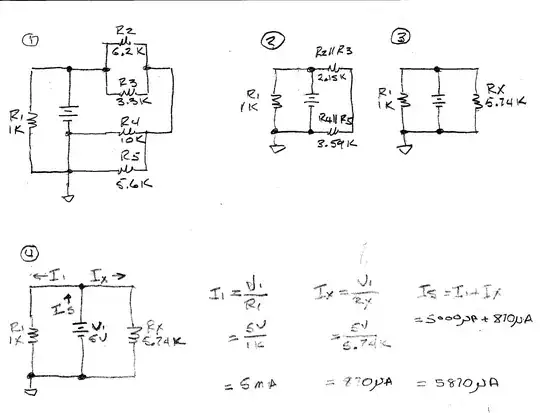 1
R2
6.2K
R3
3.3K
R1
1K
R4
10K
R5
5.6K
2
R2||R3
2.15K
R1
1K
R4||R5
3.59K
3
R1
1K
RX
5.74K
4
← I1 IX →
IS ↑
R1
1K
V1
5V
RX
5.74K
I1 = V1/R1
= 5V/1K
= 5mA
IX = V1/RX
= 5V/5.74K
= 870µA
IS = I1 + IX
= 5000µA + 870µA
= 5870µA